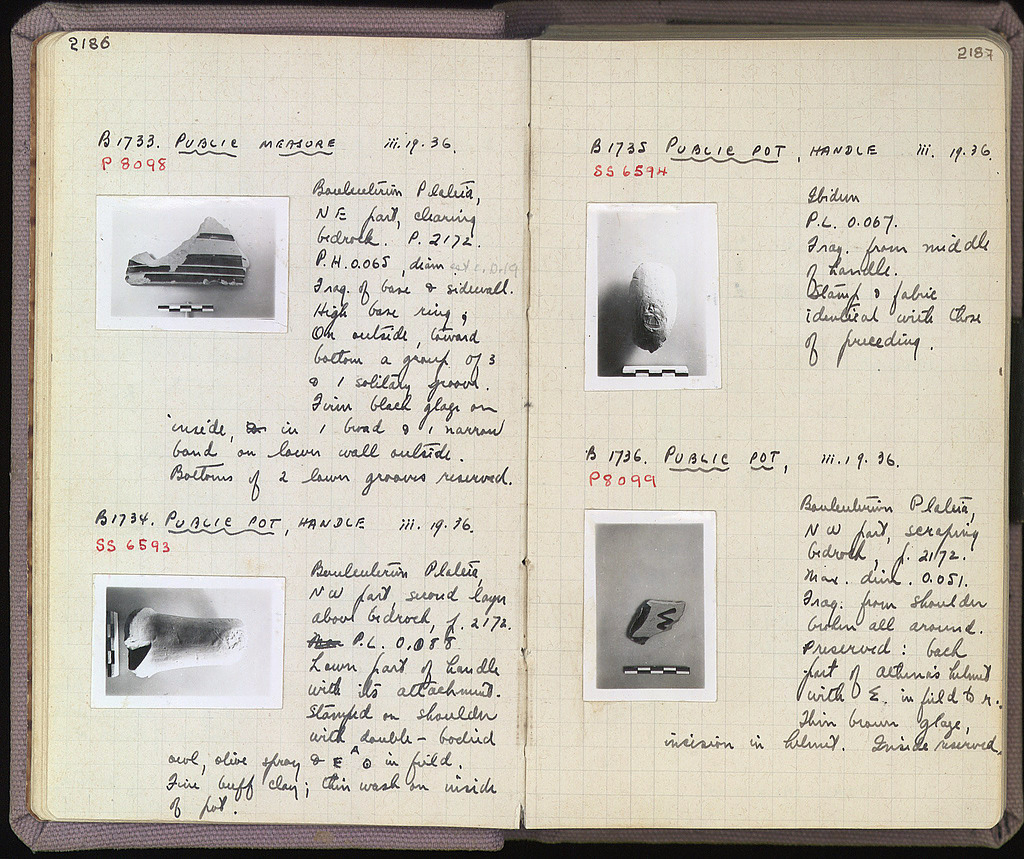 2186
B 1733. PUBLIC MEASURE iii.19.36.
P 8098
Bouleuterion Plateia,
NE part, clearing
bedrock. P. 2172.
P.H. 0.065, diam
Frag. of base & sidewall.
High base ring,
On outside, toward
bottom a group of 3
& 1 solitary groove.
Firm black glaze on
inside, in 1 broad & 1 narrow
band on lower wall outside.
Bottoms of 2 lower grooves reserved.
B 1734. PUBLIC POT, HANDLE iii.19.36.
SS 6593
Bouleuterion Plateia,
NW part, second layer
above bedrock, p. 2172.
P.L. 0.088
Lower part of handle
with its attachment.
Stamped on shoulder
with double-bodied
owl, olive spray & E A Θ in field.
Fine buff clay; thin wash on inside
of pot.
2187
B 1735 PUBLIC POT, HANDLE iii. 19.36.
SS 6594
Ibidem
P.L. 0.067.
Frag. from middle
of handle.
Stamp & fabric
identical with those
of preceding.
B 1736. PUBLIC POT, iii.19.36.
P 8099
Bouleuterion Plateia,
NW part, scraping
bedrock, p. 2172.
Max. dim. 0.051.
Frag. from shoulder
broken all around.
Preserved: back
part of Athena's helmet
with Σ. in field to r.
Thin brown glaze,
incision in helmet. Inside reserved.